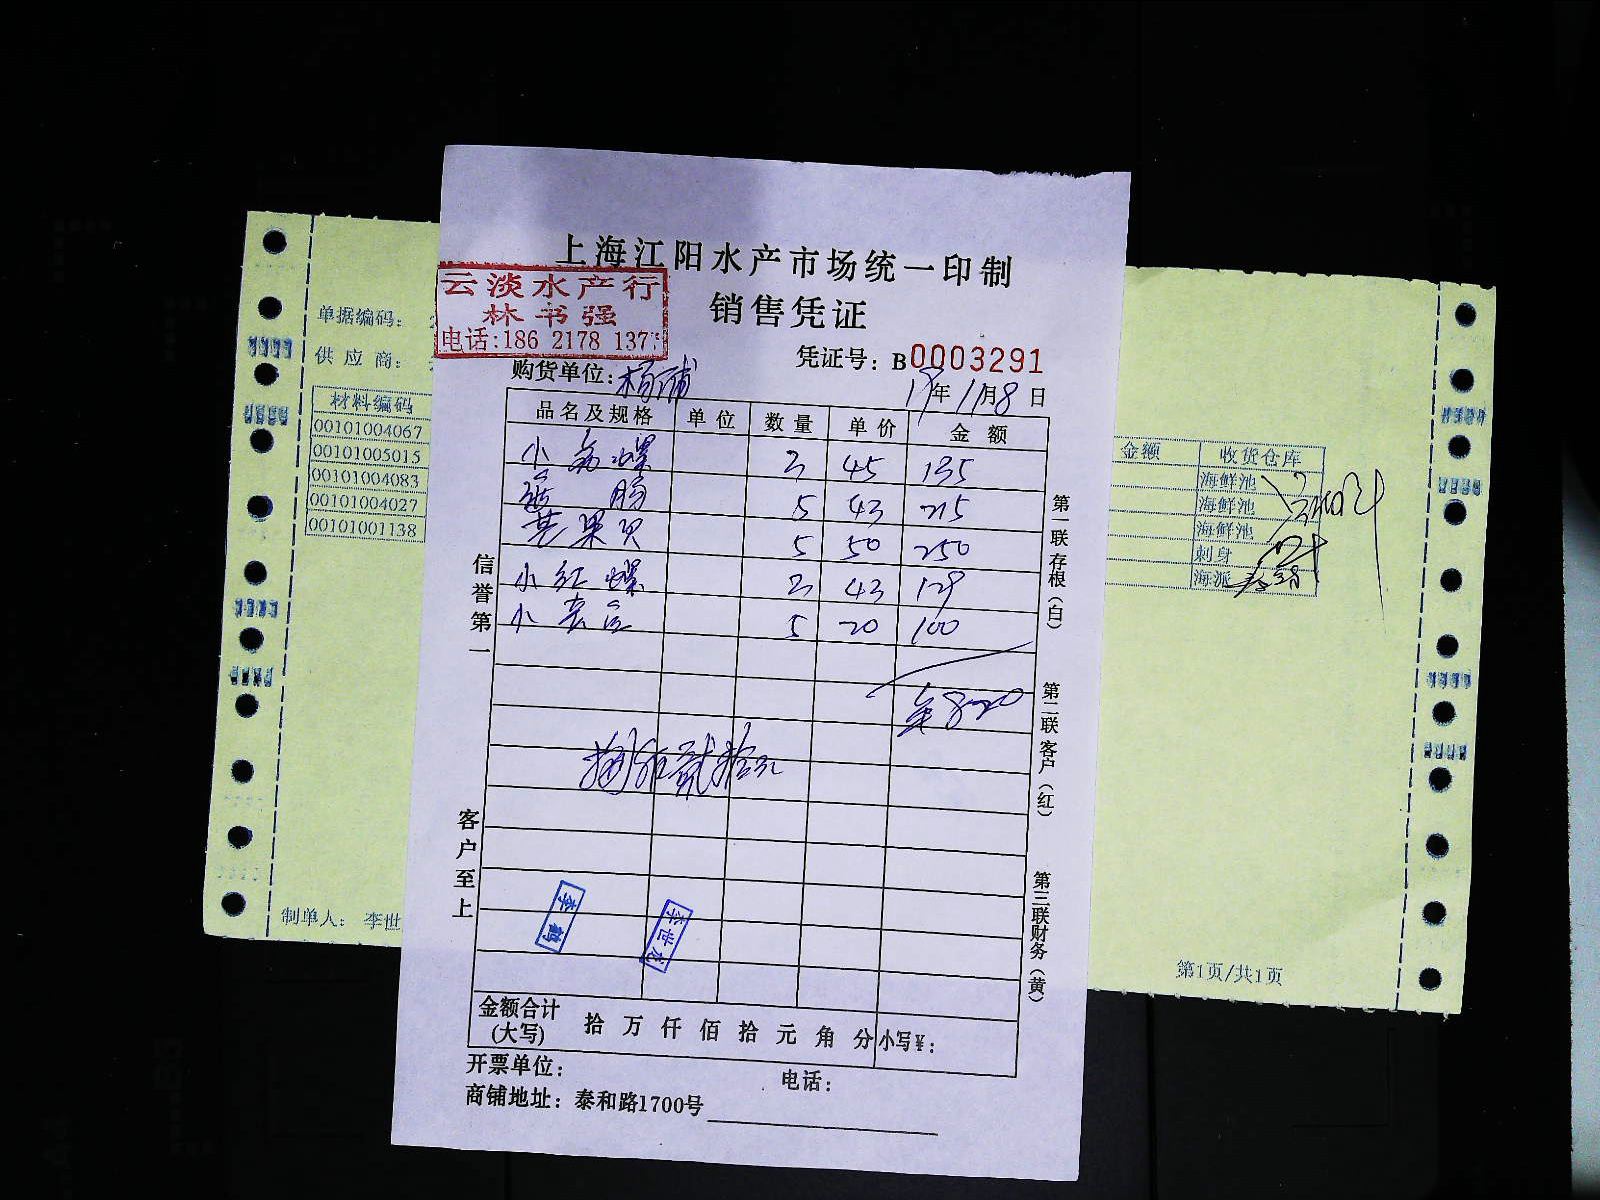 上海江阳水产市场统一印制
销售凭证
云淡水产行
林书强
电话:186 2178 137
凭证号：B0003291
购货单位：杨浦
年11月8日
品名及规格 单位 数量 单价 金额
小 螺 3 45 135
5 43 215
苹果贝 5 50 250
小红螺 3 43 129
小 5 20 100
820
捌佰贰拾元
信誉第一
客户至上
第一联存根(白)
第二联客户(红)
第三联财务(黄)
李鹤
李世龙
金额合计
(大写)
拾万仟佰拾元角分 小写¥：
开票单位： 电话：
商铺地址：泰和路1700号
单据编码：
供应商：
材料编码
00101004067
00101005015
00101004083
00101004027
00101001138
制单人： 李世
金额 收货仓库
海鲜池
海鲜池
海鲜池
刺身
海派
第1页/共1页